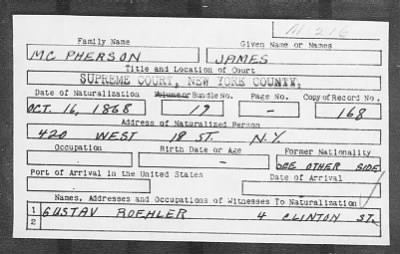 M-216
Family Name Given Name or Names
MC PHERSON JAMES
Title and Location of Court
SUPREME COURT, NEW YORK COUNTY,
Date of Naturalization Volume or Bundle No. Page No. Copy of Record No.
OCT. 16, 1868 19 - 168
Address of Naturalized Person
420 WEST 18 ST. N.Y.
Occupation Birth Date or Age Former Nationality
- SEE OTHER SIDE
Port of Arrival in the United States Date of Arrival
Names, Addresses and Occupations of Witnesses To Naturalization
1 GUSTAV ROEHLER 4 CLINTON ST.
2